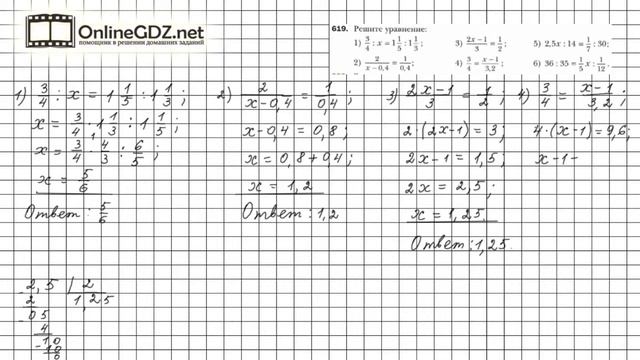 OnlineGDZ.net
помощник в решении домашних заданий
619. Решите уравнение:
1) 3/4 : x = 1 1/5 : 1 1/3;
3) (2x − 1)/3 = 1/2;
5) 2,5x : 14 = 1/7 : 30;
2) 2/(x − 0,4) = 1/0,4;
4) 3/4 = (x − 1)/3,2;
6) 36 : 35 = 1/5 x : 1/12.
1) 3/4 : x = 1 1/5 : 1 1/3;
x = 3/4 · 1 1/3 : 1 1/5;
x = 3/4 · 4/3 : 6/5;
x = 5/6
Ответ: 5/6
2) 2/(x−0,4) = 1/0,4;
x−0,4 = 0,8;
x = 0,8+0,4;
x = 1,2
Ответ: 1,2
3) (2x−1)/3 = 1/2;
2·(2x−1) = 3;
2x−1 = 1,5;
2x = 2,5;
x = 1,25.
Ответ: 1,25.
4) 3/4 = (x−1)/3,2;
4·(x−1) = 9,6;
x−1=
2,5 | 2
2 1,25
05
4
10
10
0